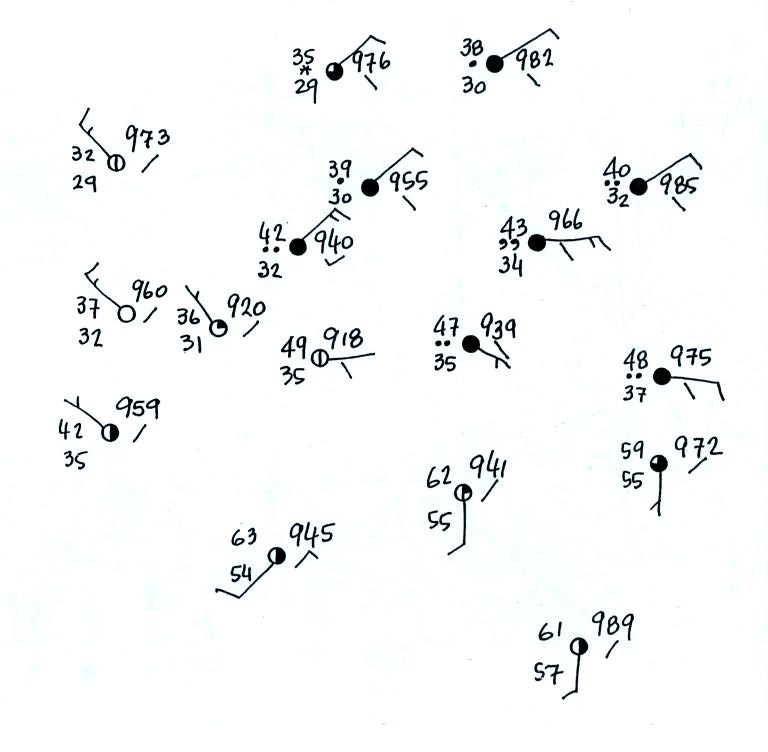 35 976
29
38 982
30
973
32
29
39 955
30
40 985
32
42 940
32
43 966
34
37 960
32
36 920
31
49 918
35
47 939
35
48 975
37
42 959
35
59 972
55
62 941
55
63 945
54
61 989
57